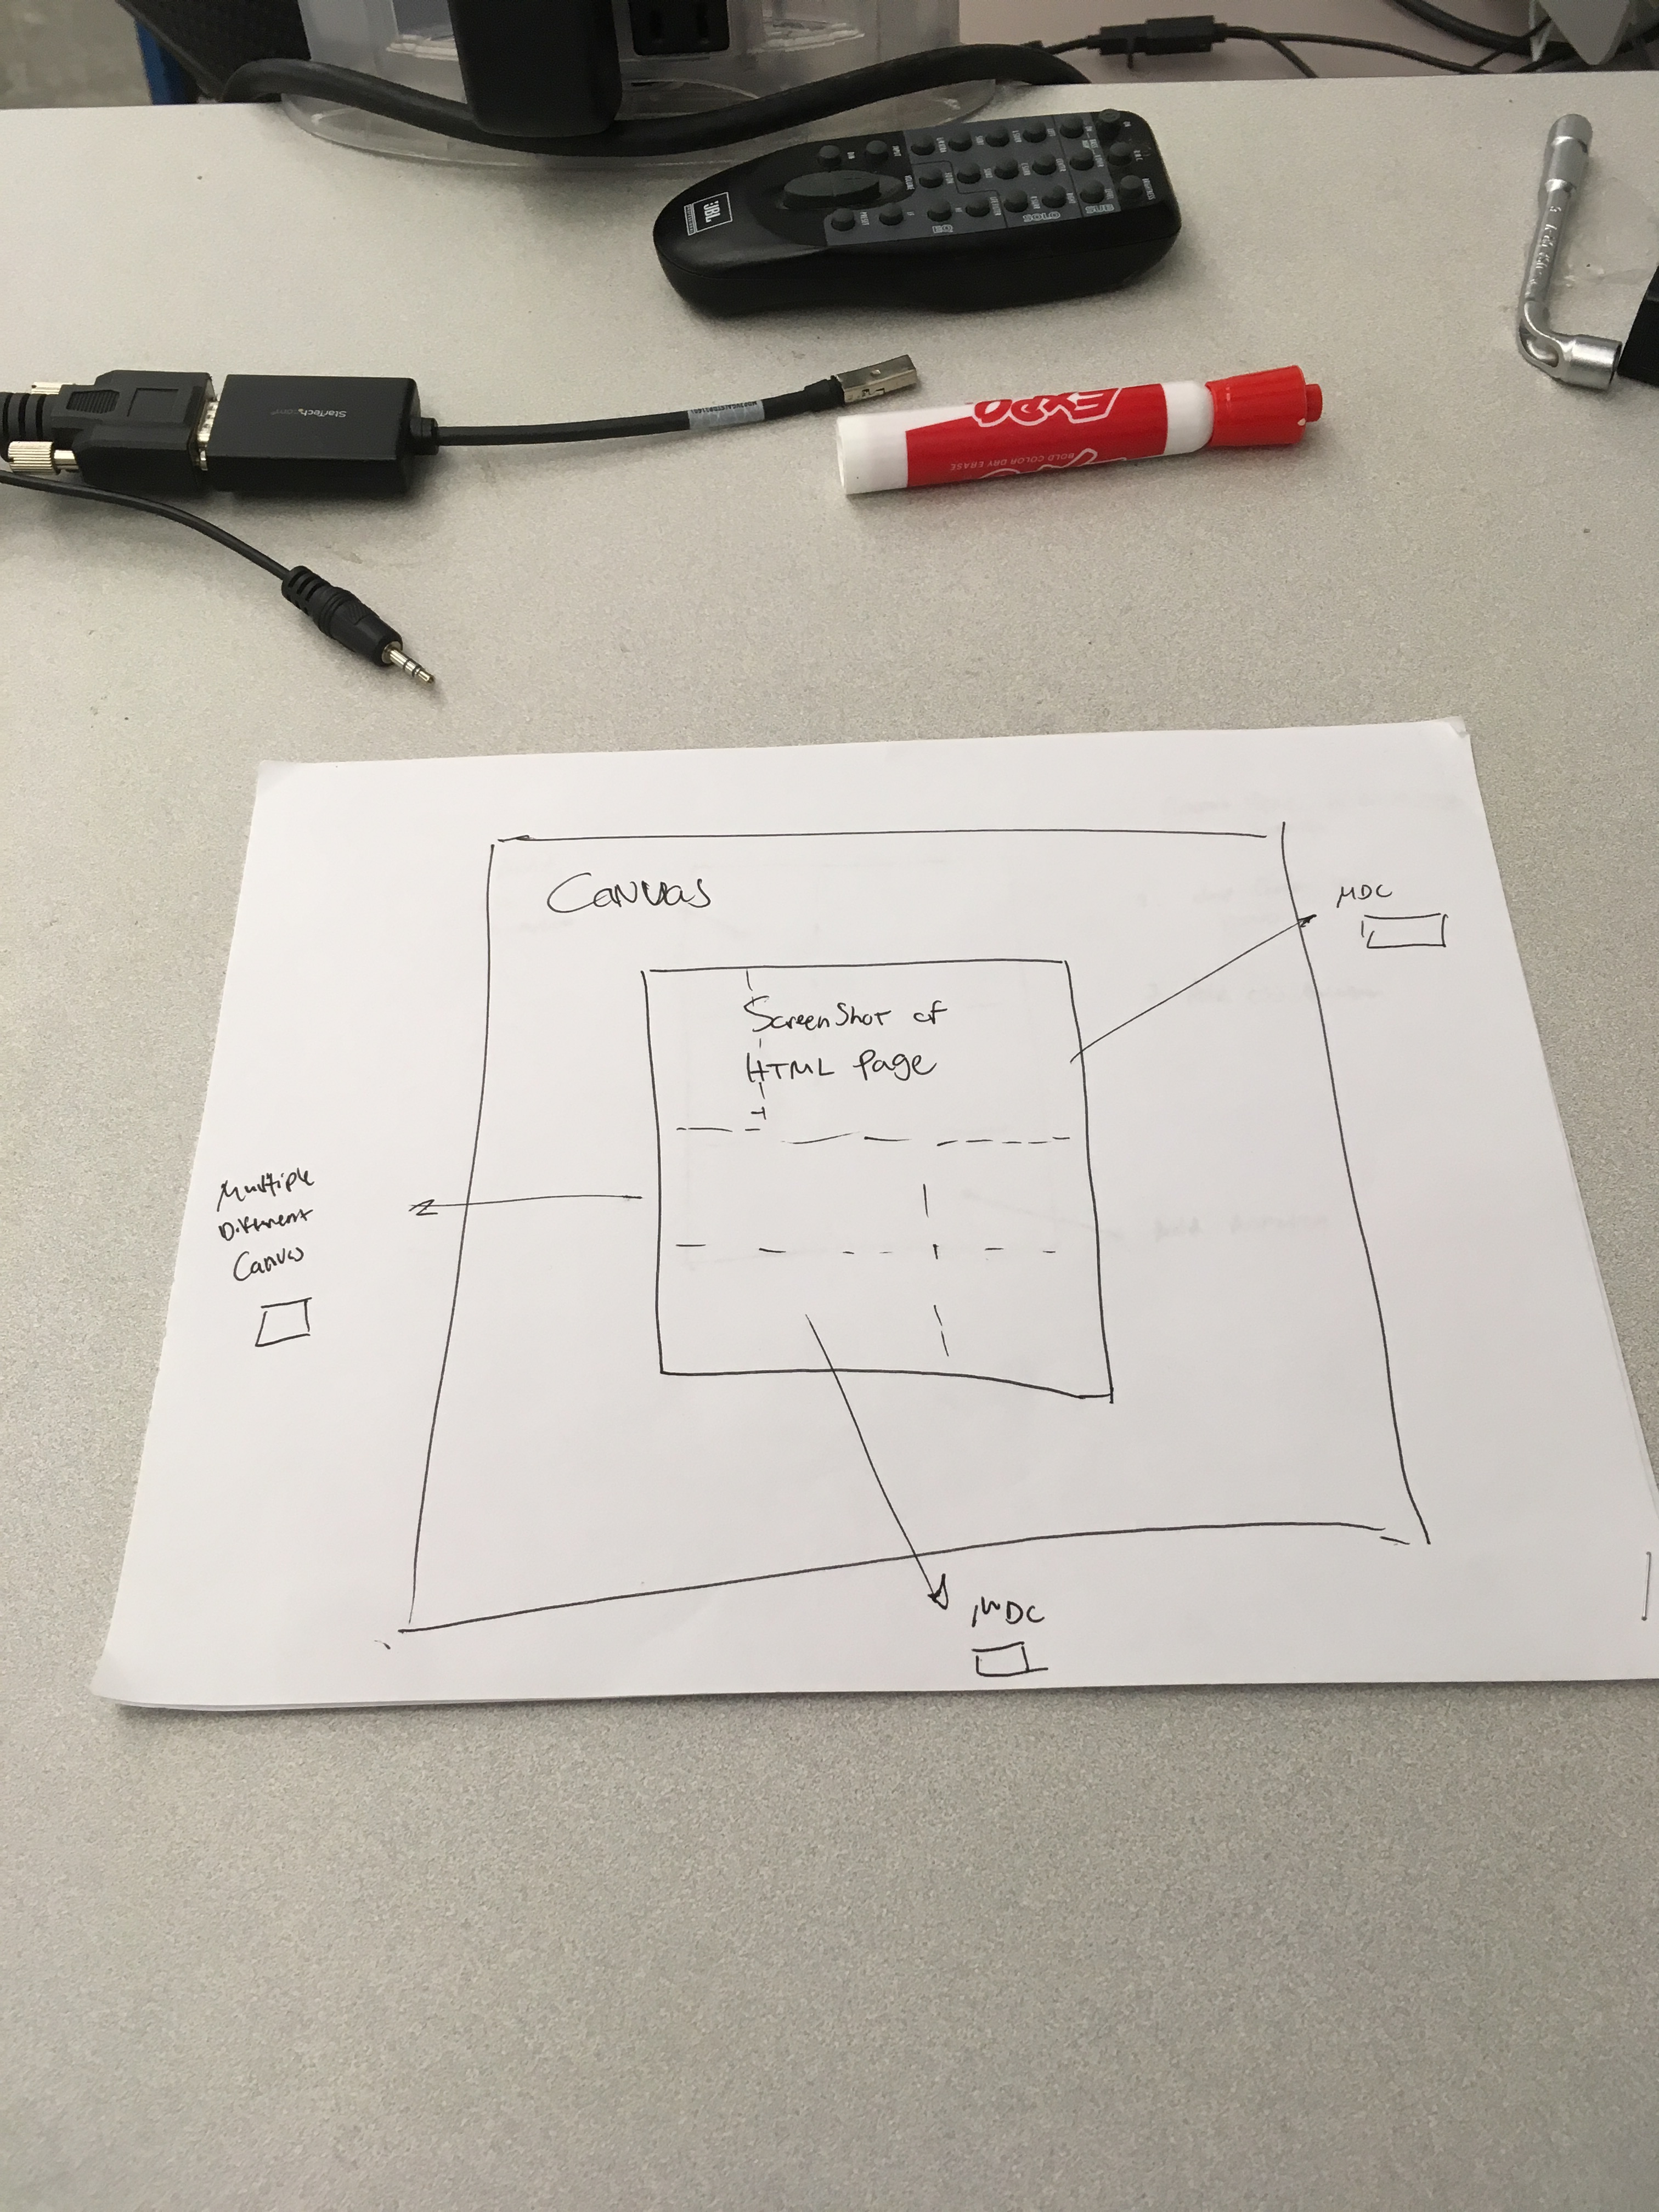 JBL
StarTech.com
EXPO
BOLD COLOR DRY ERASE
Canvas
MDC
ScreenShot of
HTML Page
Multiple
Different
Canvas
MDC